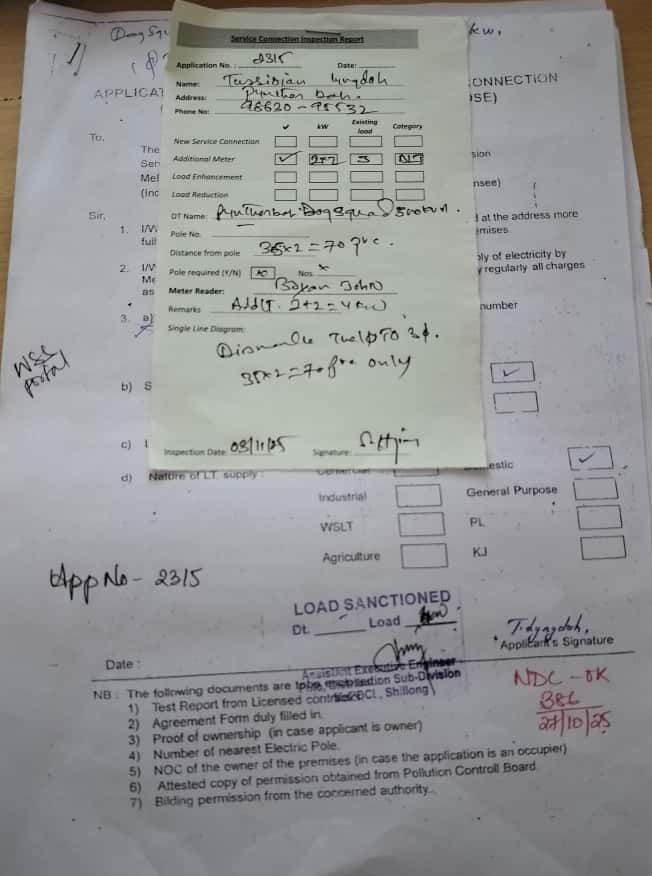 Service Connection Inspection Report
Application No. : 2315 Date:
Name:
Address:
Phone No: 98620 - 95532
✓ kW Existing load Category
New Service Connection
Additional Meter ✓ 2+2 3 DLT
Load Enhancement
Load Reduction
DT Name: Dog Squad
Pole No.
Distance from pole 35x2 = 70 pvc.
Pole required (Y/N) NO Nos x
Meter Reader: John
Remarks Addl. 2+2 = 4 kw
Single Line Diagram:
Dismantle TO 3φ.
35x2 = 70 only
Inspection Date 03/11/25 Signature:
Dog Squ
kw,
APPLICAT
ONNECTION
SE)
To,
The
Ser sion
Mee
(Inc nsee)
Sir,
1. I/W at the address more
full mises
2. I/W ply of electricity by
Me y regularly all charges
as
3. a) number
WSS
portal
b) S ✓
c)
d) Nature of LT. supply : Commercial estic ✓
Industrial General Purpose
WSLT PL
Agriculture KJ
App No - 2315
LOAD SANCTIONED
Dt. Load
Assistant Executive Engineer
Sub-Division
Shillong
Applicant's Signature
Date :
NDC - OK
386
27/10/25
NB : The following documents are to be
1) Test Report from Licensed
2) Agreement Form duly filled in.
3) Proof of ownership (in case applicant is owner)
4) Number of nearest Electric Pole.
5) NOC of the owner of the premises (in case the application is an occupier)
6) Attested copy of permission obtained from Pollution Controll Board.
7) Bilding permission from the concerned authority..